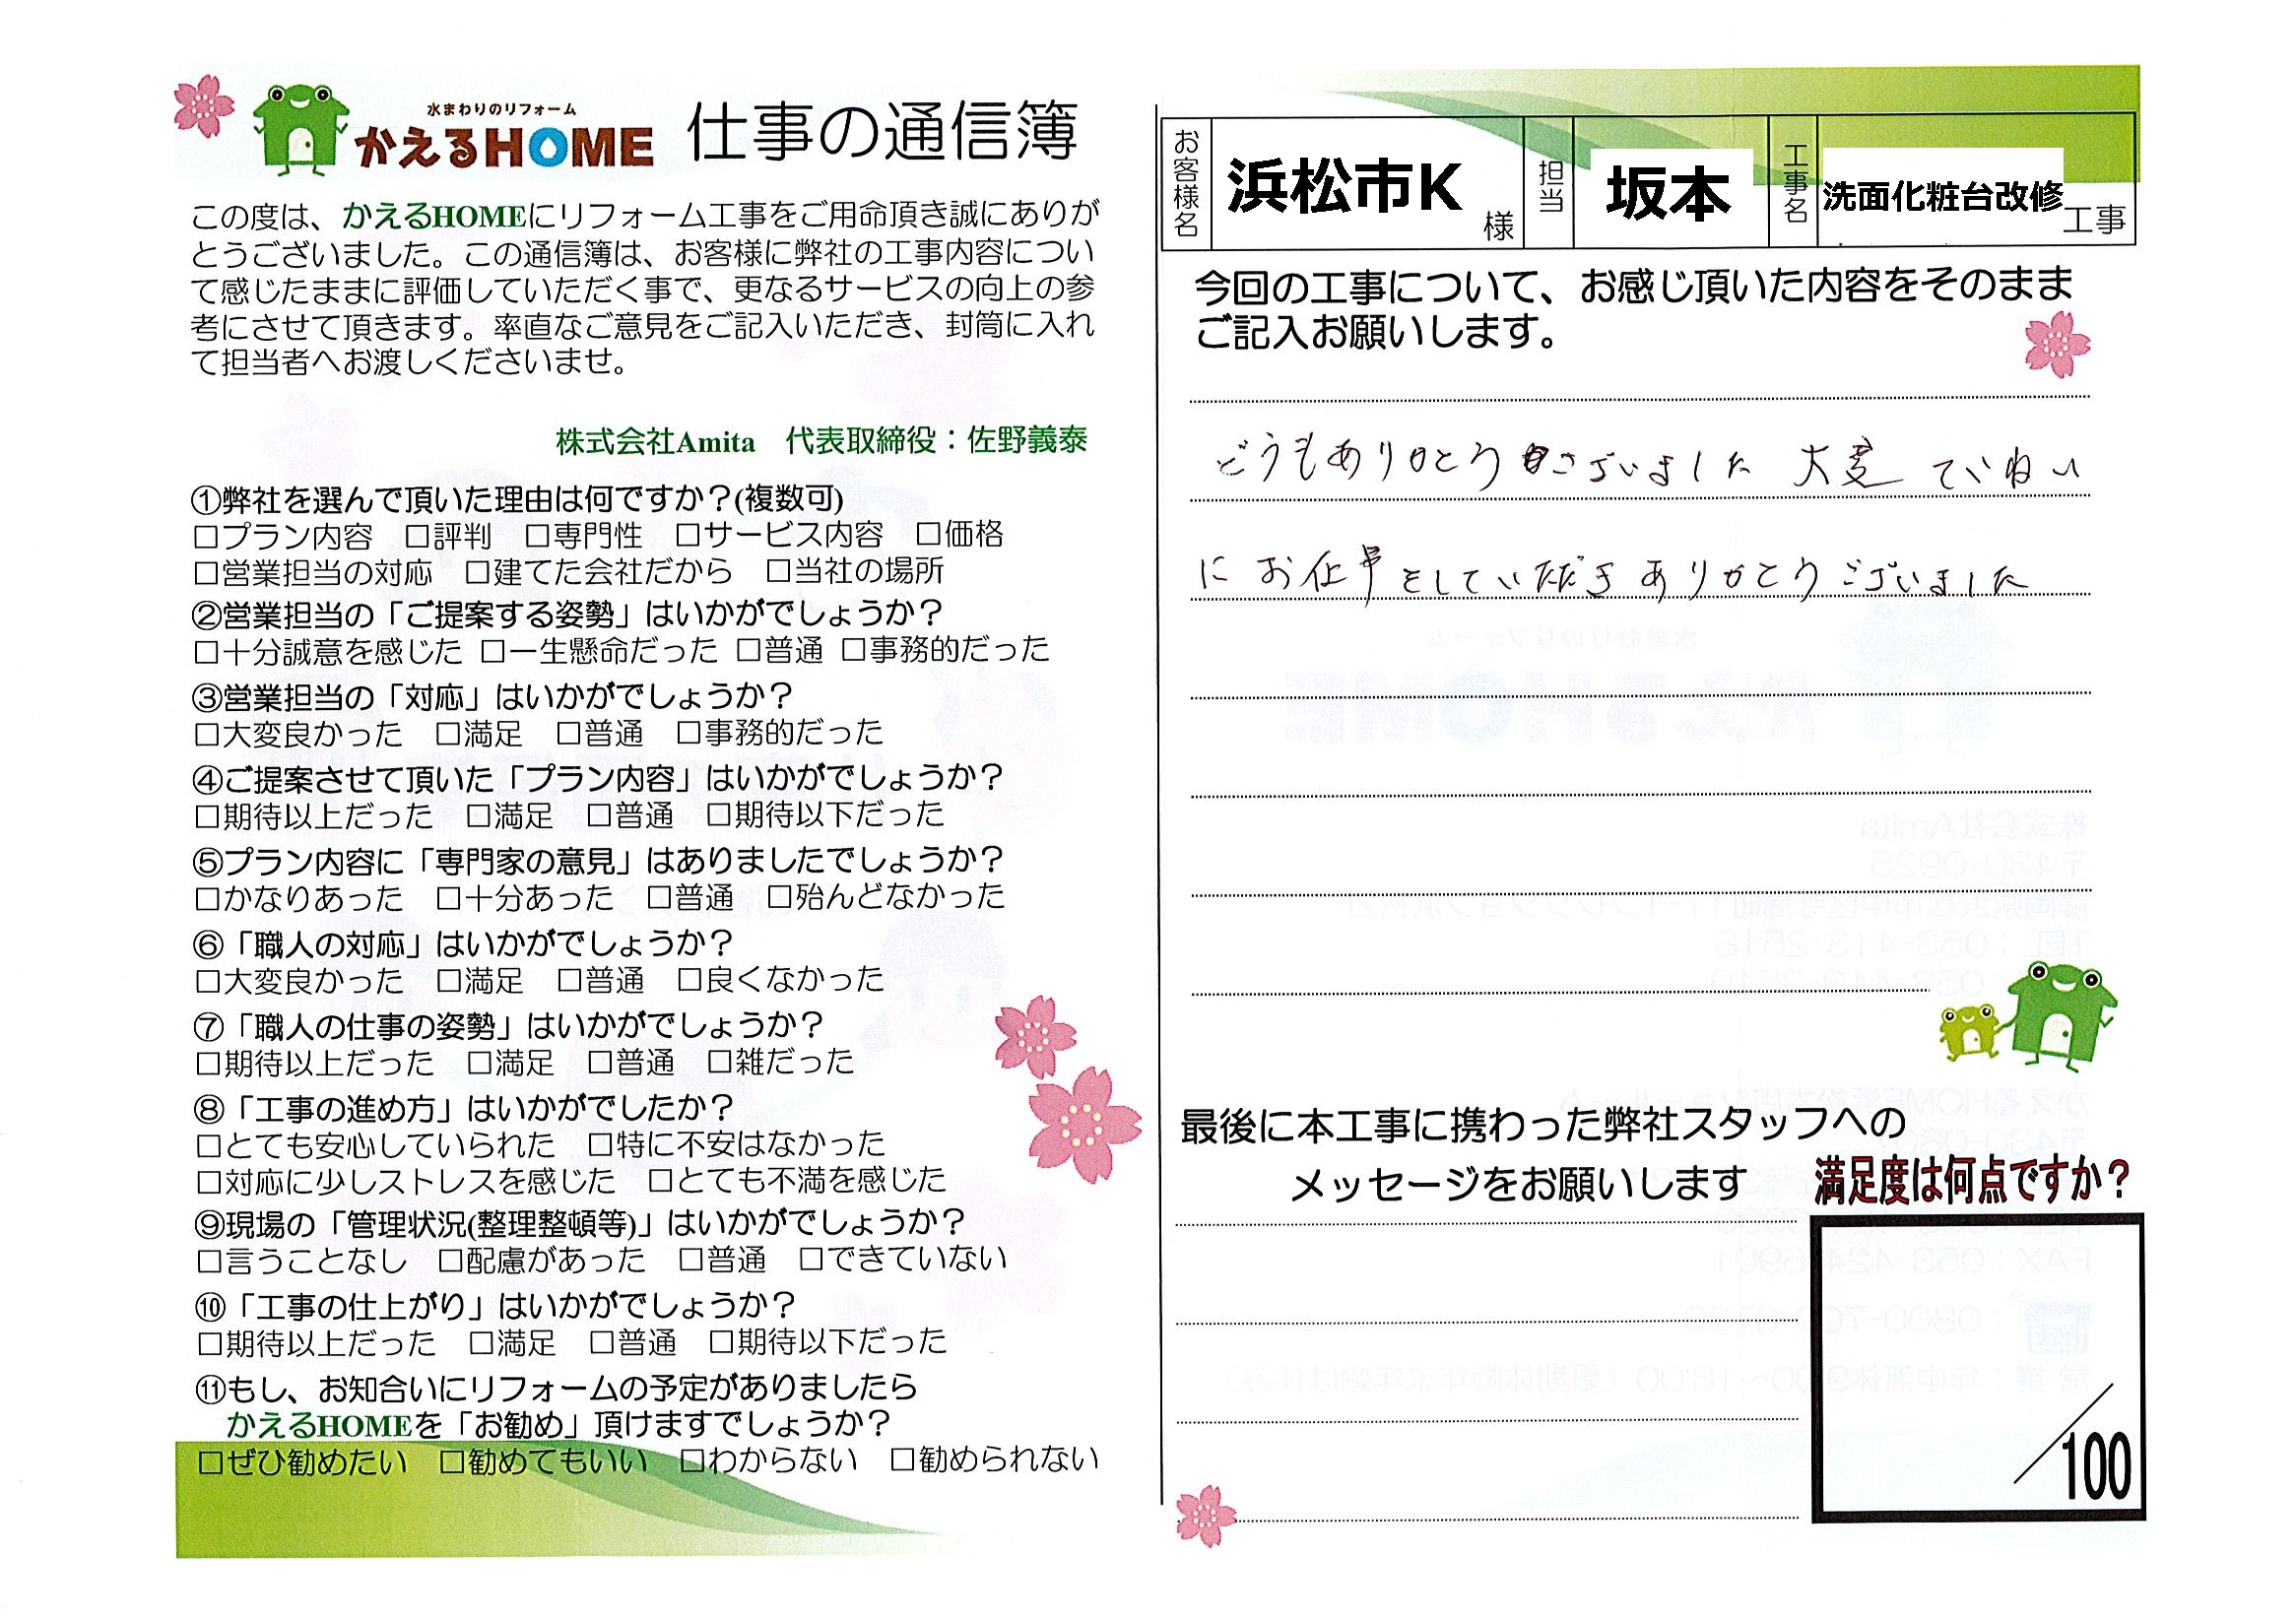 水まわりのリフォーム
かえるHOME
仕事の通信簿
この度は、かえるHOMEにリフォーム工事をご用命頂き誠にありが
とうございました。この通信簿は、お客様に弊社の工事内容につい
て感じたままに評価していただく事で、更なるサービスの向上の参
考にさせて頂きます。率直なご意見をご記入いただき、封筒に入れ
て担当者へお渡しくださいませ。
株式会社Amita　代表取締役：佐野義泰
①弊社を選んで頂いた理由は何ですか？(複数可)
□プラン内容　□評判　□専門性　□サービス内容　□価格
□営業担当の対応　□建てた会社だから　□当社の場所
②営業担当の「ご提案する姿勢」はいかがでしょうか？
□十分誠意を感じた □一生懸命だった □普通 □事務的だった
③営業担当の「対応」はいかがでしょうか？
□大変良かった　□満足　□普通　□事務的だった
④ご提案させて頂いた「プラン内容」はいかがでしょうか？
□期待以上だった　□満足　□普通　□期待以下だった
⑤プラン内容に「専門家の意見」はありましたでしょうか？
□かなりあった　□十分あった　□普通　□殆んどなかった
⑥「職人の対応」はいかがでしょうか？
□大変良かった　□満足　□普通　□良くなかった
⑦「職人の仕事の姿勢」はいかがでしょうか？
□期待以上だった　□満足　□普通　□雑だった
⑧「工事の進め方」はいかがでしたか？
□とても安心していられた　□特に不安はなかった
□対応に少しストレスを感じた　□とても不満を感じた
⑨現場の「管理状況(整理整頓等)」はいかがでしょうか？
□言うことなし　□配慮があった　□普通　□できていない
⑩「工事の仕上がり」はいかがでしょうか？
□期待以上だった　□満足　□普通　□期待以下だった
⑪もし、お知合いにリフォームの予定がありましたら
かえるHOMEを「お勧め」頂けますでしょうか？
□ぜひ勧めたい　□勧めてもいい　□わからない　□勧められない
お客様名 浜松市K 様 担当 坂本 工事名 洗面化粧台改修 工事
今回の工事について、お感じ頂いた内容をそのまま
ご記入お願いします。
どうもありがとうございました 大変 ていねい
に お仕事をしていただき ありがとうございました
最後に本工事に携わった弊社スタッフへの
メッセージをお願いします
満足度は何点ですか？
／100